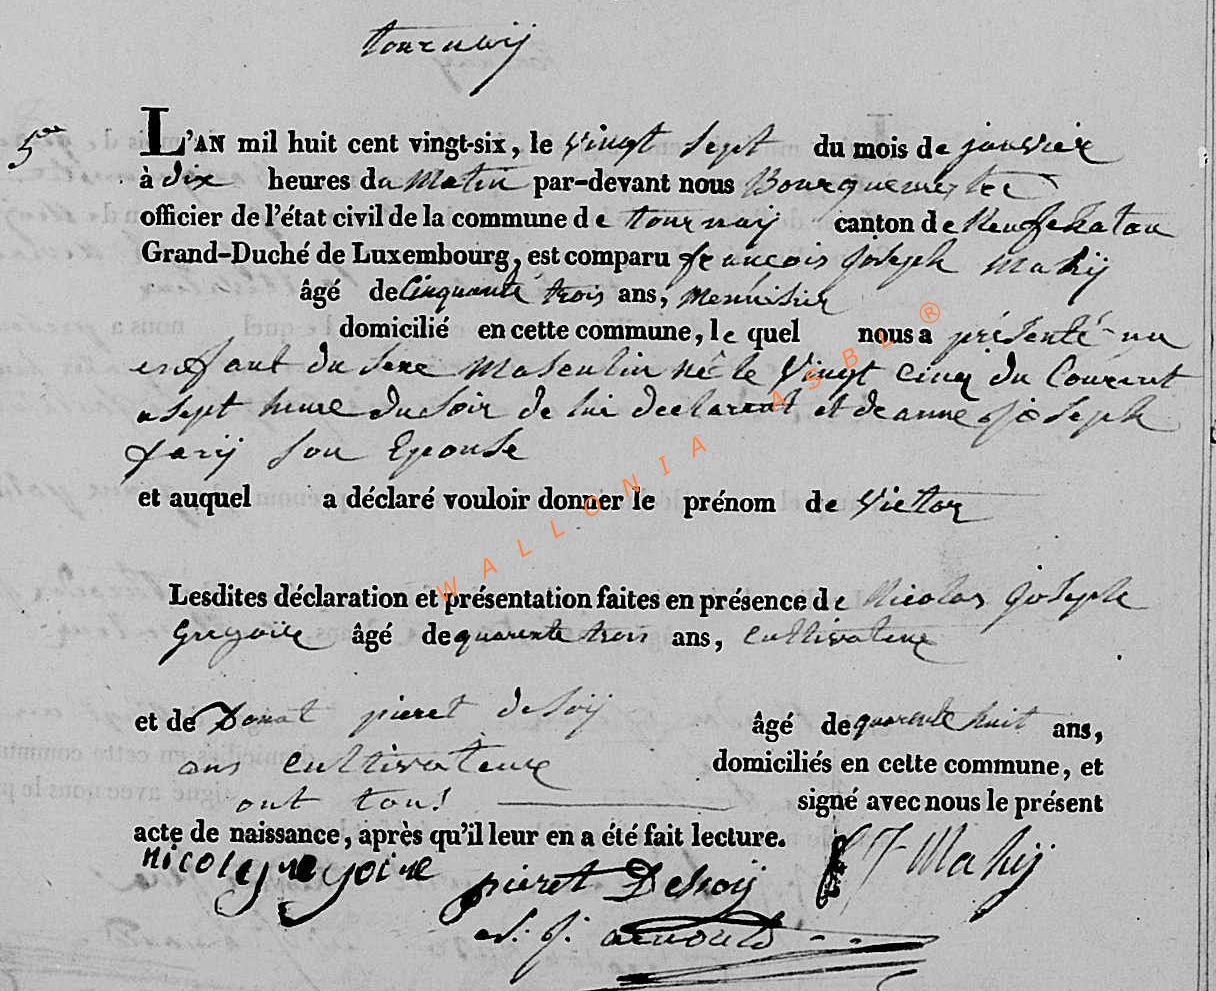 tournaij
5me
L'AN mil huit cent vingt-six, le vingt sept du mois de janvier
à dix heures du Matin par-devant nous Bourguemestre
officier de l'état civil de la commune de tournaij canton de Neufchatau
Grand-Duché de Luxembourg, est comparu francois Joseph Mahij
âgé de Cinquante trois ans, Menuisier
domicilié en cette commune, le quel nous a présenté un
enfant du sexe Masculin né le Vingt cinq du Courent
a sept heure du soir de lui declarent et de anne joseph
farij son Epouse
et auquel a déclaré vouloir donner le prénom de Victor
Lesdites déclaration et présentation faites en présence de Nicolas Joseph
Gregoire âgé de quarente trois ans, Cultivateur
et de Donat pieret desoij âgé de quarente huit ans,
ans Cultivateur domiciliés en cette commune, et
ont tous signé avec nous le présent
acte de naissance, après qu'il leur en a été fait lecture.
F J Mahij
pieret
J. arnould
WALLONIA ASBL ®